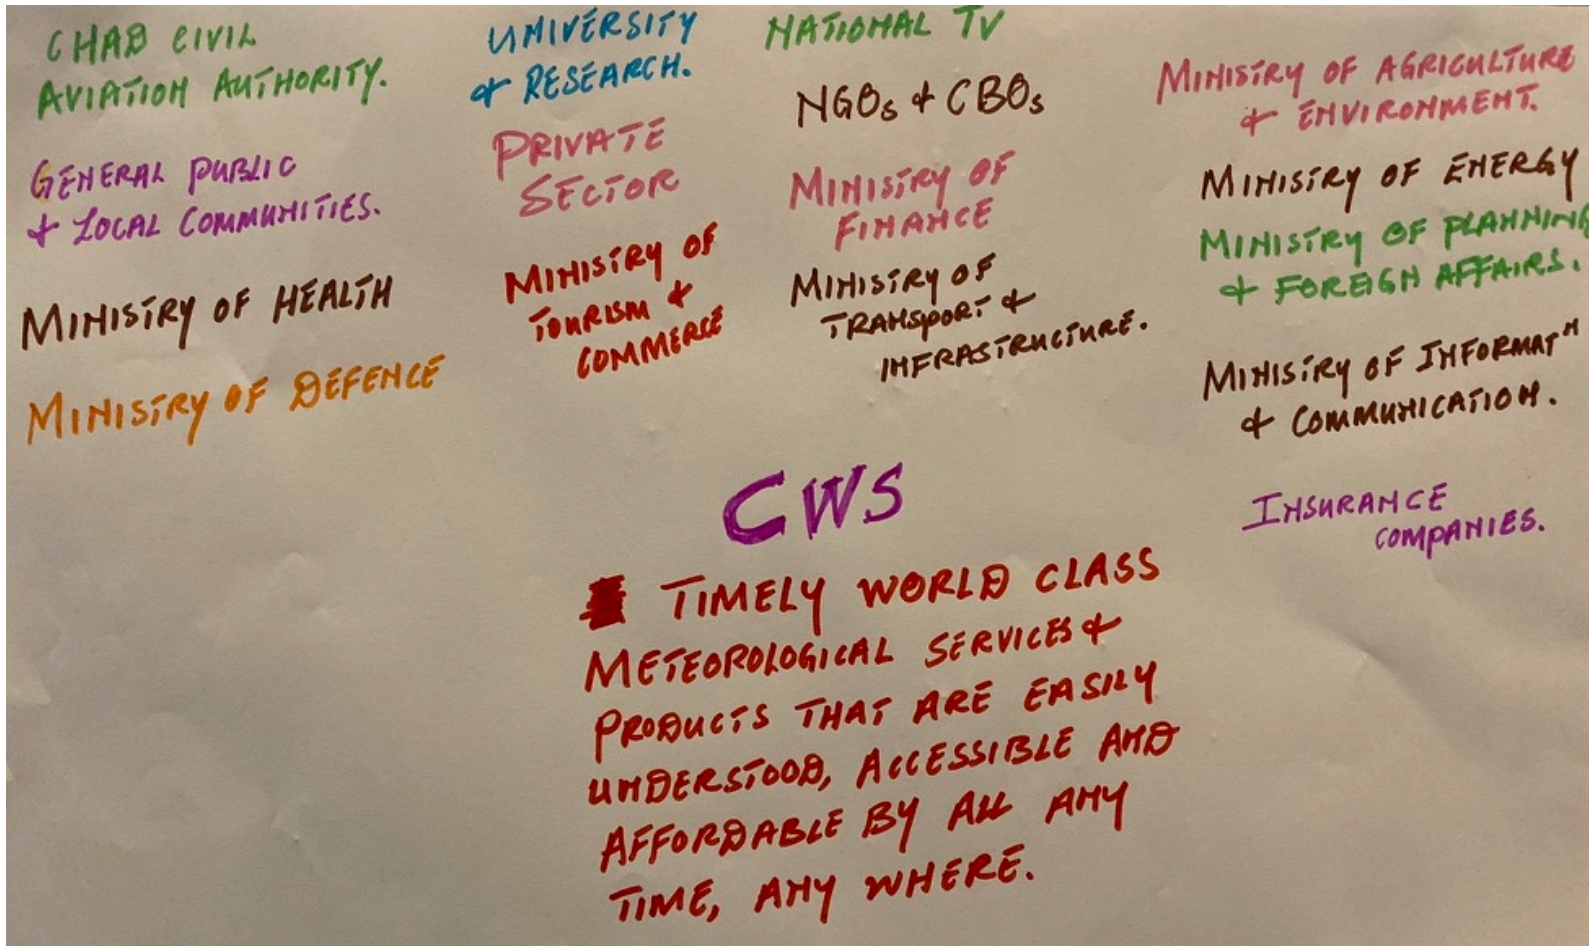 CHAD CIVIL
AVIATION AUTHORITY.
GENERAL PUBLIC
& LOCAL COMMUNITIES.
MINISTRY OF HEALTH
MINISTRY OF DEFENCE
UNIVERSITY
& RESEARCH.
PRIVATE
SECTOR
MINISTRY OF
TOURISM &
COMMERCE
NATIONAL TV
NGOs & CBOs
MINISTRY OF
FINANCE
MINISTRY OF
TRANSPORT &
INFRASTRUCTURE.
MINISTRY OF AGRICULTURE
& ENVIRONMENT.
MINISTRY OF ENERGY
MINISTRY OF PLANNING
& FOREIGN AFFAIRS.
MINISTRY OF INFORMATN
& COMMUNICATION.
INSURANCE
COMPANIES.
CWS
TIMELY WORLD CLASS
METEOROLOGICAL SERVICES &
PRODUCTS THAT ARE EASILY
UNDERSTOOD, ACCESSIBLE AND
AFFORDABLE BY ALL ANY
TIME, ANY WHERE.